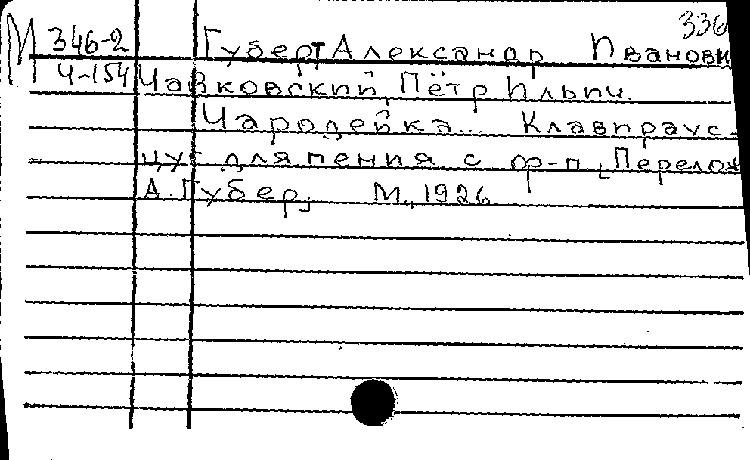 336
М 346-2 Губерт Александр Иванови
Ч-154 Чайковский, Пётр Ильич.
Чародейка... Клавираус-
цуг для пения с ф-п. [Перелож
А. Губер] М., 1926